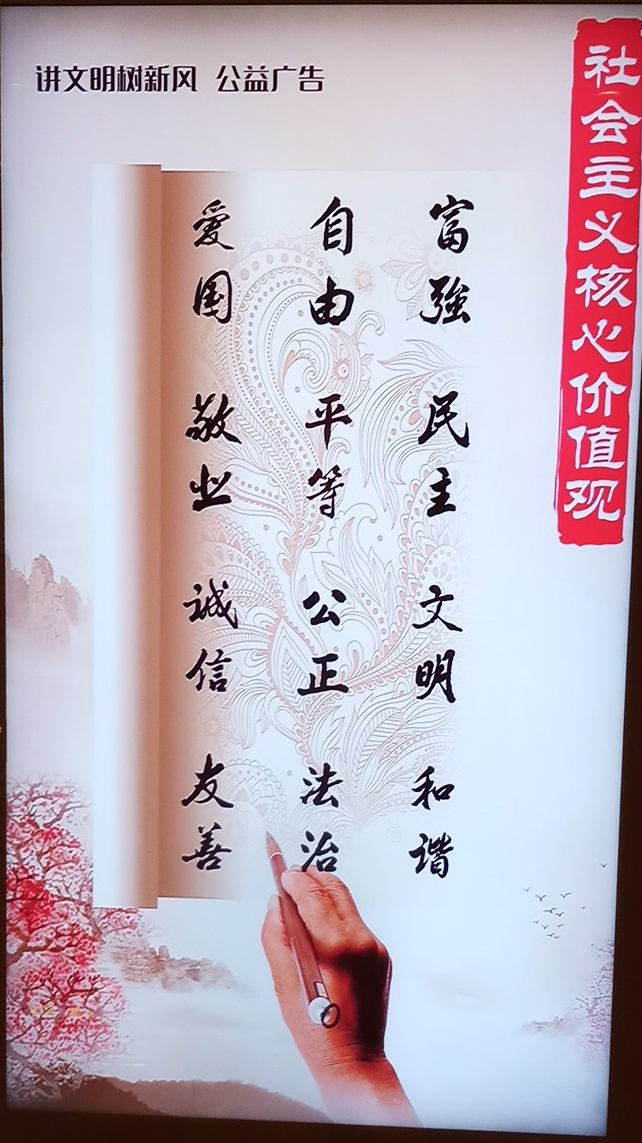 讲文明树新风 公益广告
社会主义核心价值观
富強 民主 文明 和谐
自由 平等 公正 法治
爱国 敬业 诚信 友善